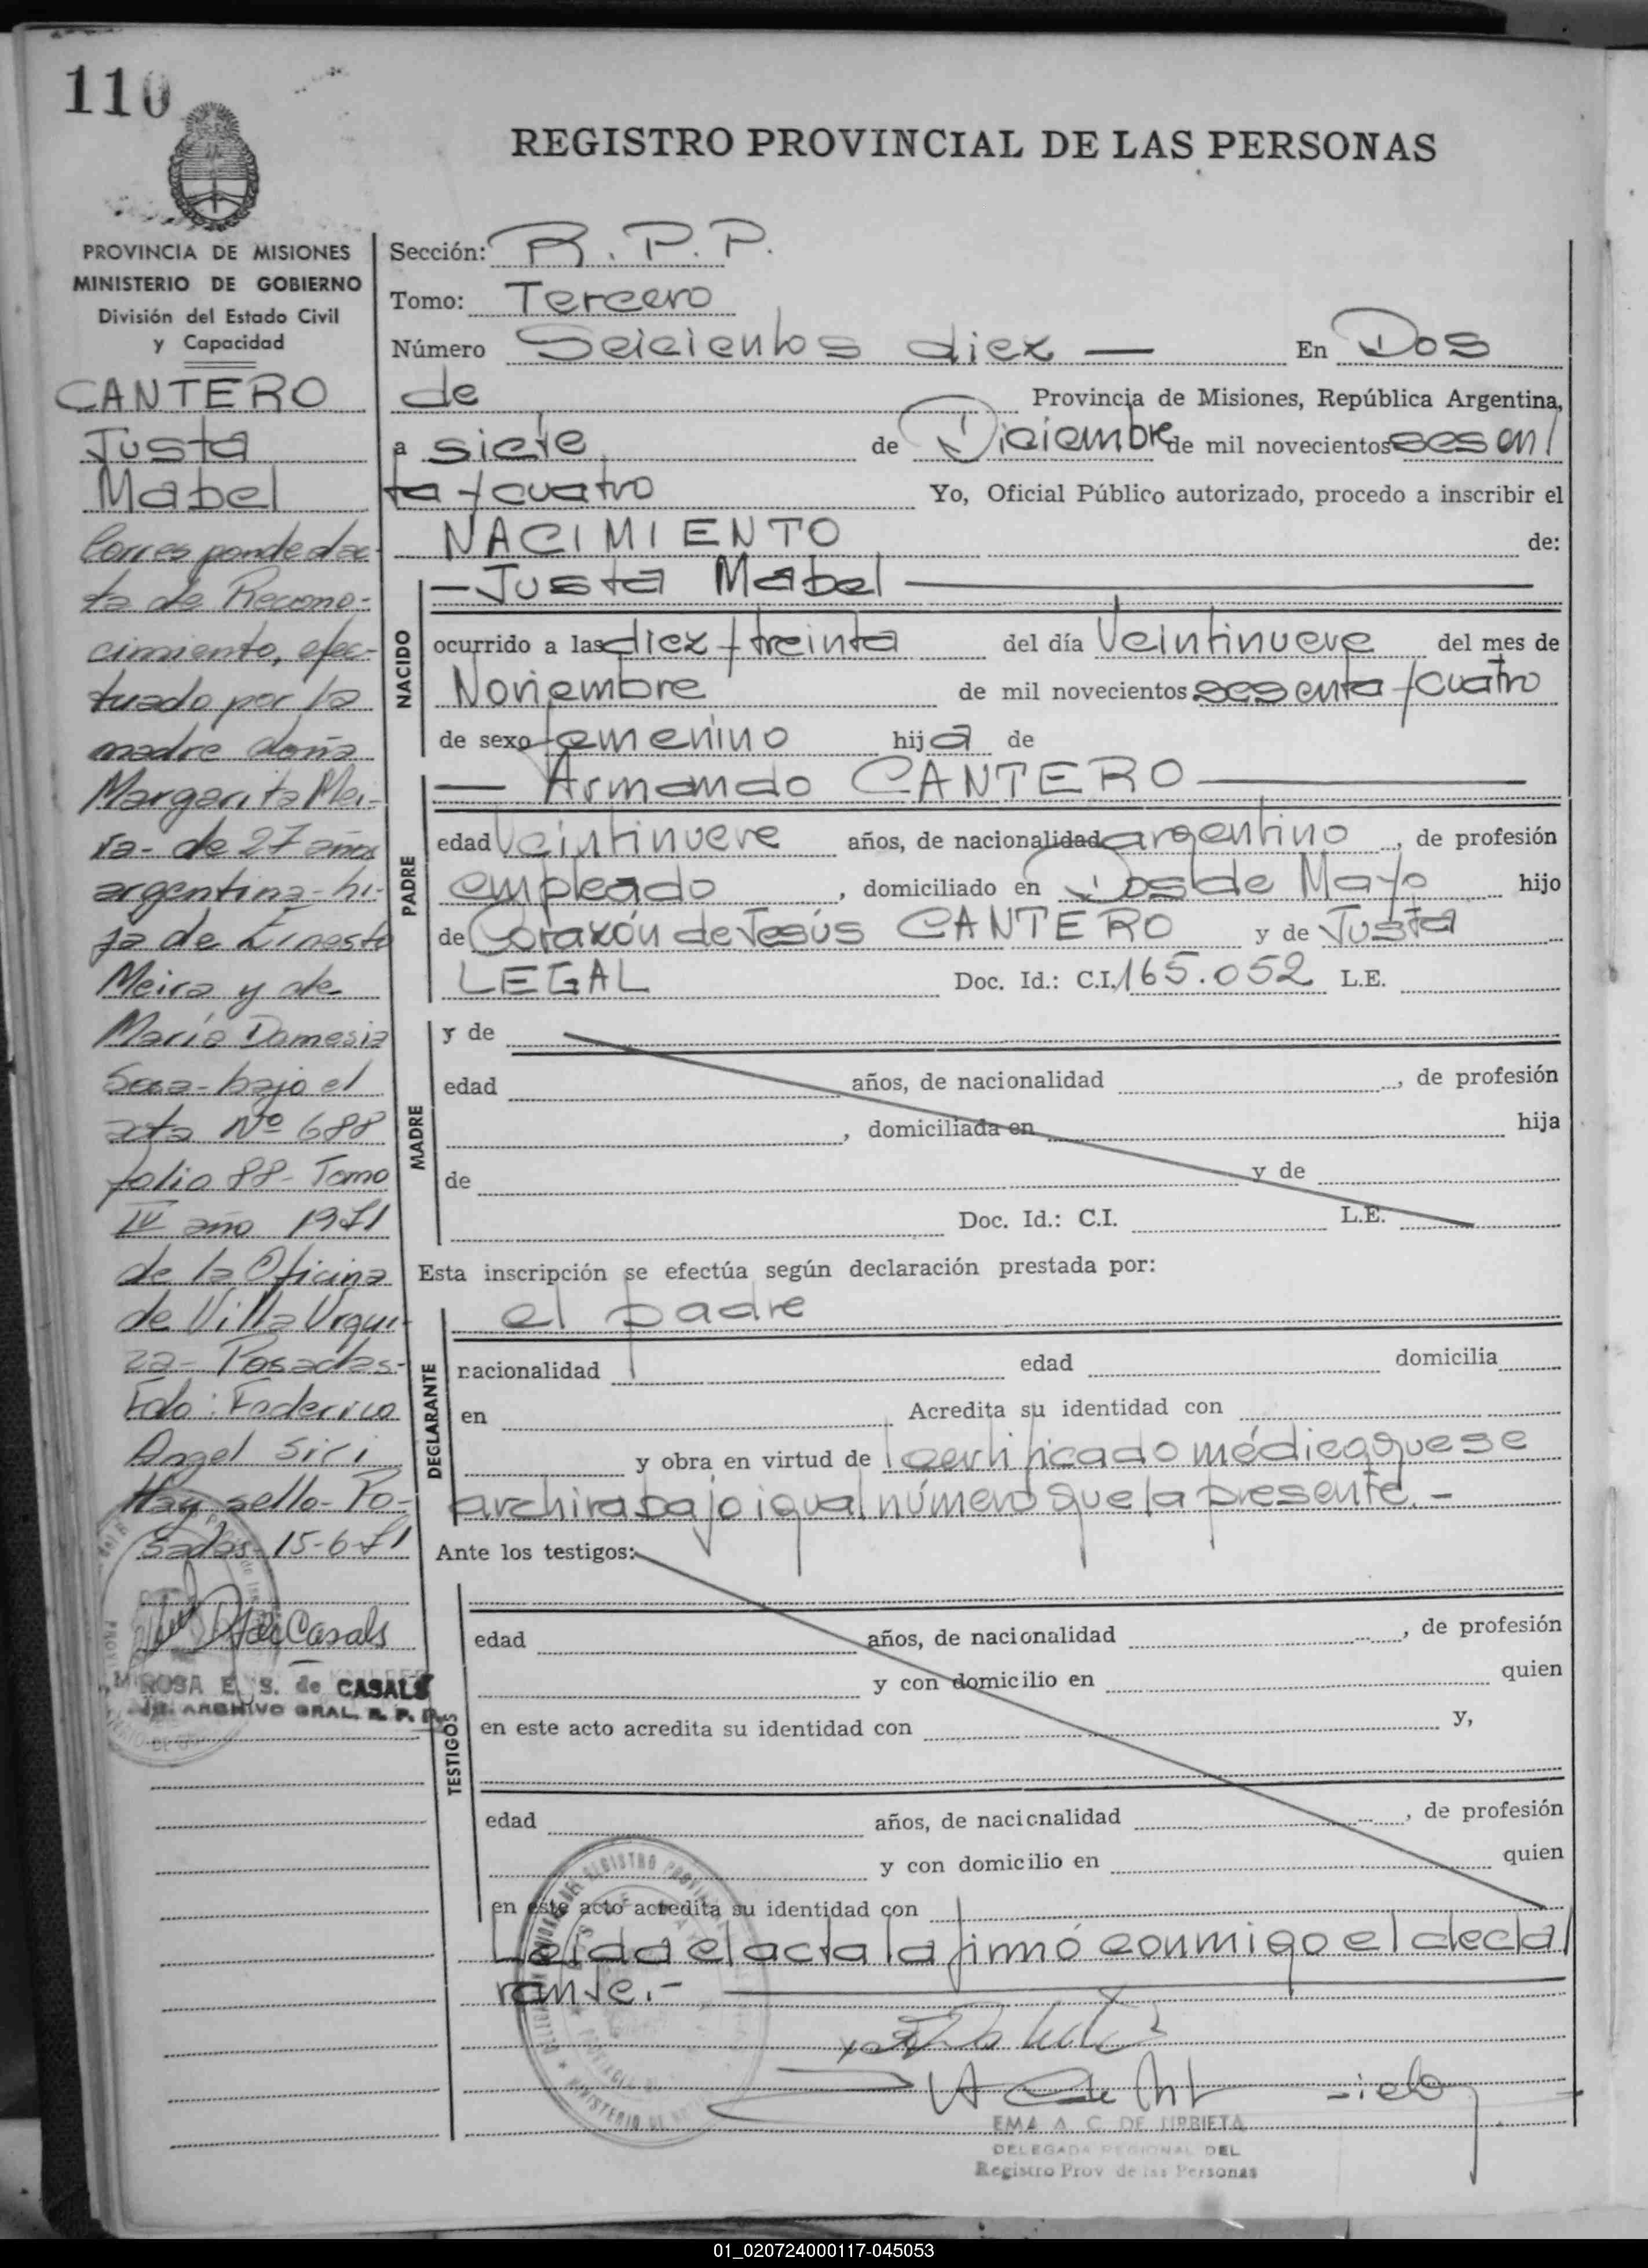 110
REGISTRO PROVINCIAL DE LAS PERSONAS
PROVINCIA DE MISIONES
MINISTERIO DE GOBIERNO
División del Estado Civil
y Capacidad
CANTERO
Justa
Mabel
Corresponde ac-
ta de Recono-
cimiento, efec-
tuado por la
madre doña
Margarita Mei-
ra- de 27 años
argentina- hi-
ja de Ernesto
Meira y de
María Damesia
Sosa- bajo el
acta Nº 688
folio 88- Tomo
IV año 1971
de la Oficina
de Villa Urqui-
za- Posadas-
Fdo: Federico
Angel Siri
Hay sello- Po-
sadas- 15-6-71
de Casals
ROSA E. S. de CASALS
ARCHIVO GRAL. R. P. P.
Sección: R. P. P.
Tomo: Tercero
Número Seicientos diez — En Dos
de Provincia de Misiones, República Argentina,
a siete de Diciembre de mil novecientos sesen/
ta y cuatro Yo, Oficial Público autorizado, procedo a inscribir el
NACIMIENTO de:
NACIDO
— Justa Mabel —
ocurrido a las diez y treinta del día Veintinueve del mes de
Noviembre de mil novecientos sesenta y cuatro
de sexo femenino hija de
PADRE
— Armando CANTERO —
edad Veintinueve años, de nacionalidad argentino, de profesión
empleado, domiciliado en Dos de Mayo hijo
de Corazón de Jesús CANTERO y de Justa
LEGAL Doc. Id.: C.I. 165.052 L.E.
MADRE
y de
edad años, de nacionalidad , de profesión
, domiciliada en hija
de y de
Doc. Id.: C.I. L.E.
Esta inscripción se efectúa según declaración prestada por:
DECLARANTE
el padre
nacionalidad edad domicilia
en Acredita su identidad con
y obra en virtud de certificado médico que se
archiva bajo igual número que la presente.-
Ante los testigos:
TESTIGOS
edad años, de nacionalidad , de profesión
y con domicilio en quien
en este acto acredita su identidad con y,
edad años, de nacionalidad , de profesión
y con domicilio en quien
en este acto acredita su identidad con
Leída el acta la firmó conmigo el decla/
rante.-
EMA A. C. DE URBIETA
DELEGADA REGIONAL DEL
Registro Prov de las Personas
01_020724000117-045053